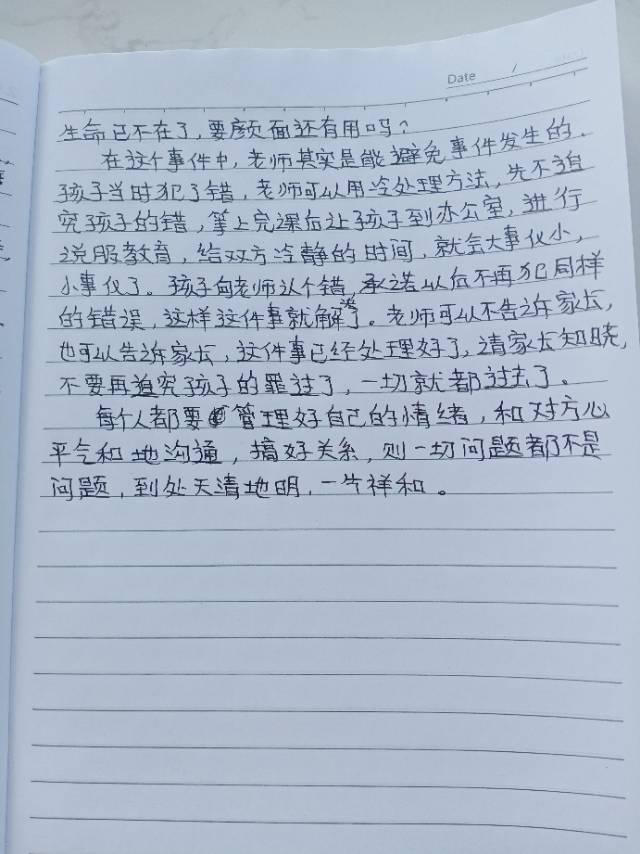 Date /
生命已不在了,要颜面还有用吗?
在这个事件中,老师其实是能避免事件发生的.
孩子当时犯了错,老师可以用冷处理方法,先不追
究孩子的错,等上完课后让孩子到办公室,进行
说服教育,给双方冷静的时间,就会大事化小,
小事化了。孩子向老师认个错,承诺以后不再犯同样
的错误,这样这件事就解决了。老师可以不告诉家长,
也可以告诉家长,这件事已经处理好了,请家长知晓,
不要再追究孩子的罪过了,一切就都过去了。
每个人都要管理好自己的情绪,和对方心
平气和地沟通,搞好关系,则一切问题都不是
问题,到处天清地明,一片祥和。